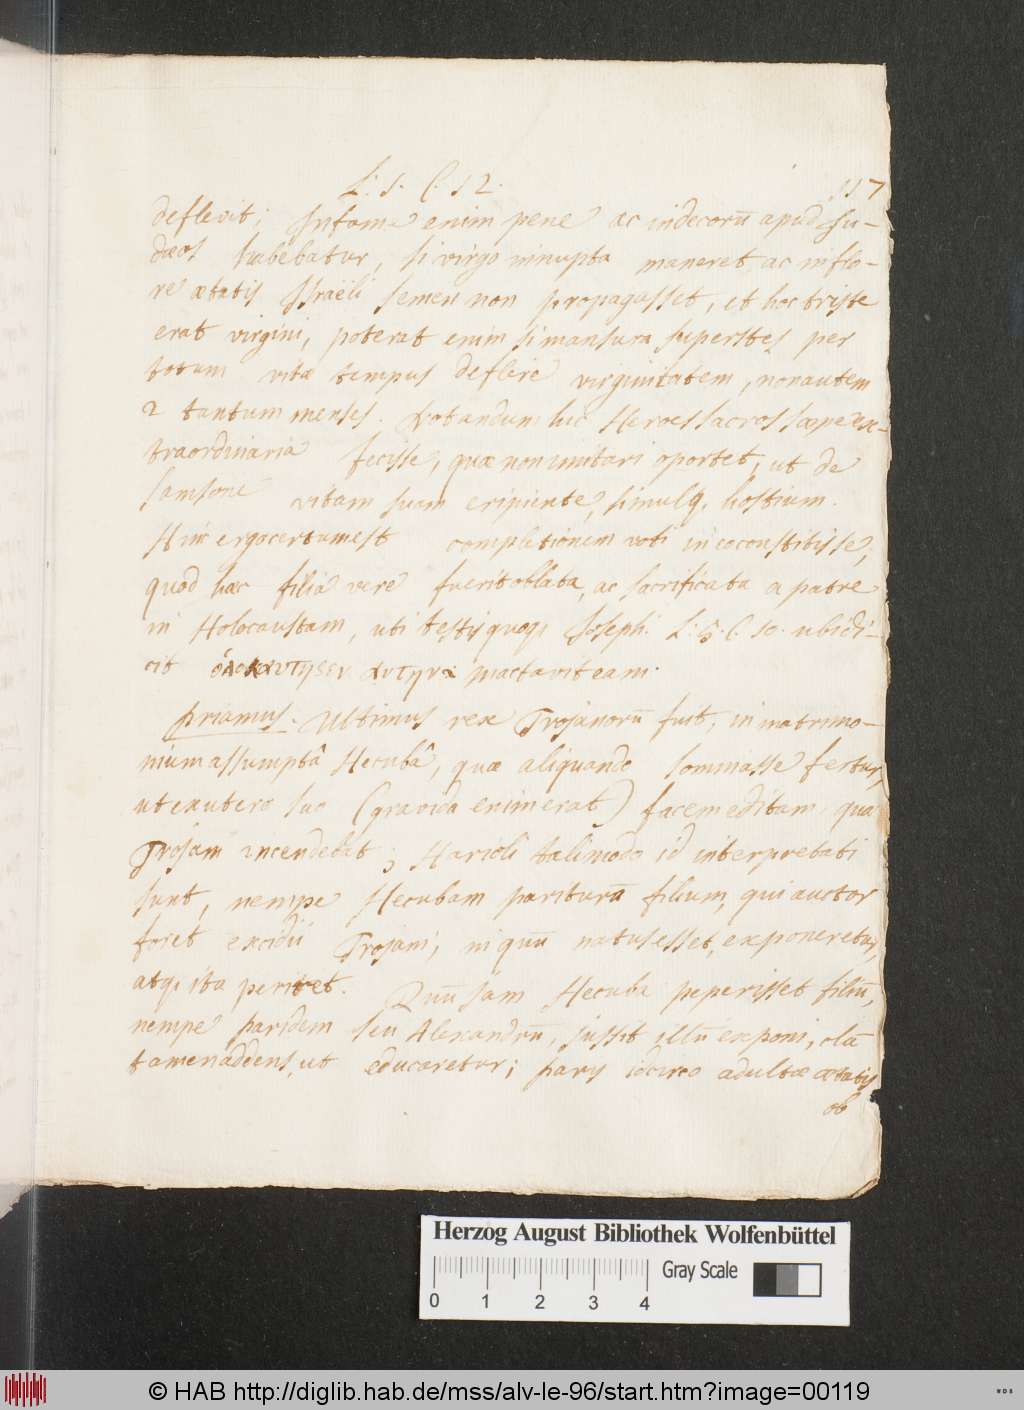 L: 1. C. 12. 117
deflevit; Infame enim pene ac indecorū apud Ju-
dæos habebatur, si virgo innupta maneret ac in flo-
re ætatis Israëli semen non propagasset, et hoc triste
erat virgini, poterat enim si mansura superstes per
totum vitæ tempus deflere virginitatem, non autem
2 tantum menses. Notandum hic Heroes sacros sæpe ex-
traordinaria fecisse, quæ non imitari oportet, ut de
Samsone vitam suam eripiente, simulq. hostium.
Hinc ergo certum est completionem voti in eo constitisse,
quod hæc filia vere fuerit oblata, ac sacrificata a patre
in Holocaustam, uti testis quoq. Joseph. L: 5. C. 10. ubi di-
cit mactavit eam.
Priamus. Ultimus rex Trojanorū fuit, in matrimo-
nium assumptâ Hecubâ, quæ aliquando somniasse fertur,
ut ex utero suo (gravida enim erat) facem editam, qua
Trojam incendebat; Harioli talimodo id interpretati
sunt, nempe Hecubam parituram filium, qui auctor
foret excidii Trojani, ni quū natus esset, exponeretur,
atq. ita periret. Quū jam Hecuba peperisset filiū,
nempe paridem seu Alexandrū, jussit illū exponi, clā
tamen addens, ut educaretur; parys idcirco adultæ ætatis
ob
Herzog August Bibliothek Wolfenbüttel
Gray Scale
0 1 2 3 4
© HAB http://diglib.hab.de/mss/alv-le-96/start.htm?image=00119